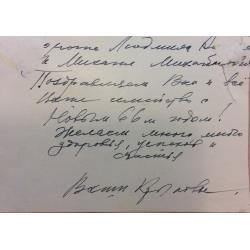 Людмила
и Михаил Михайлович
Поздравляем Вас и всё
Ваше семейство с
Новым 66м годом.
Желаем много много
здоровья, успехов и
счастья
Ваши